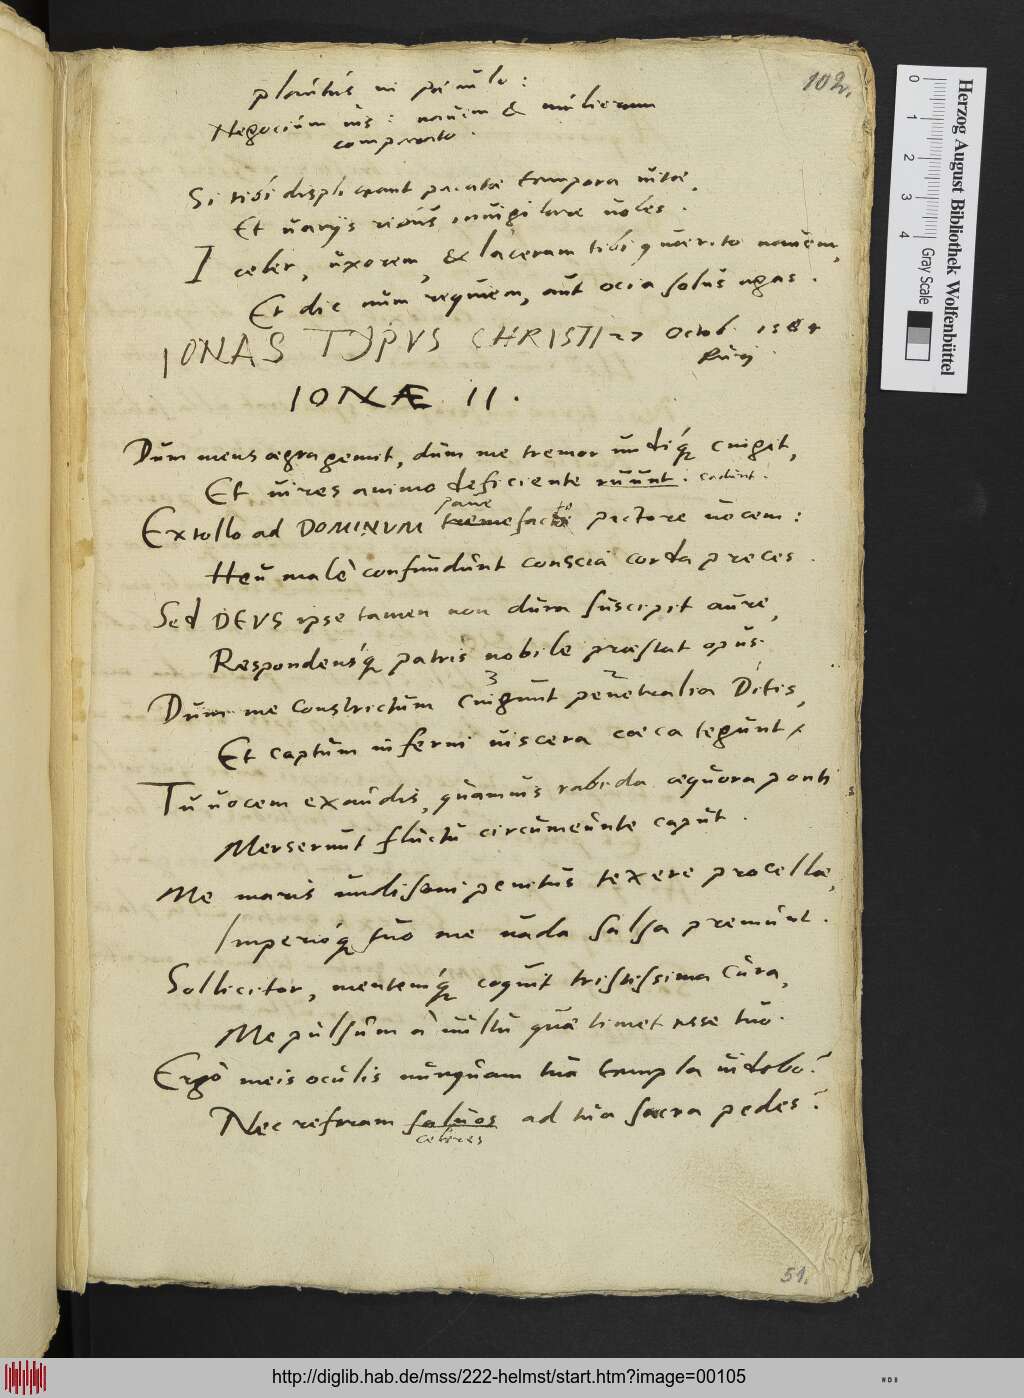 102.
plautus in pænulo:
Negocium uis: nauem & mulierem
comparato.
Si tibi displiceant pacatæ tempora uitæ,
Et uarijs rebus inuigilare uoles.
I celer, uxorem, & laceram tibi quærito nauem,
Et dic num requiem, aut ocia solus agas.
IONAS TYPVS CHRISTI 27 Octob. 1584
Ruri
IONÆ II.
Dum mens ægra gemit, dum me tremor undiq́ cingit,
Et uires animo deficiente ruunt. cadunt.
paue to
Extollo ad DOMINVM tremefacto pectore uocem:
Heu malè confundunt conscia corda preces.
Sed DEVS ipse tamen non dura suscipit aure,
Respondensq́ patris nobile præstat opus
3 2
Dum me constrictum cingunt penetralia Ditis,
Et captum inferni uiscera cæca tegunt
Tu uocem exaudis, quamuis rabida æquora ponti
Merserunt fluctu circumeunte caput.
Me maris undisoni penitus texere procellæ,
Imperioq́ tuo me uada salsa premunt.
Sollicitor, mentemq́ coquit tristissima cura,
Me pulsum à uultu quæ timet esse tuo.
Ergò meis oculis nunquam tua templa uidebo?
Nec referam saluos ad tua sacra pedes?
celeres
51.
Herzog August Bibliothek Wolfenbüttel
0 1 2 3 4
Gray Scale
http://diglib.hab.de/mss/222-helmst/start.htm?image=00105